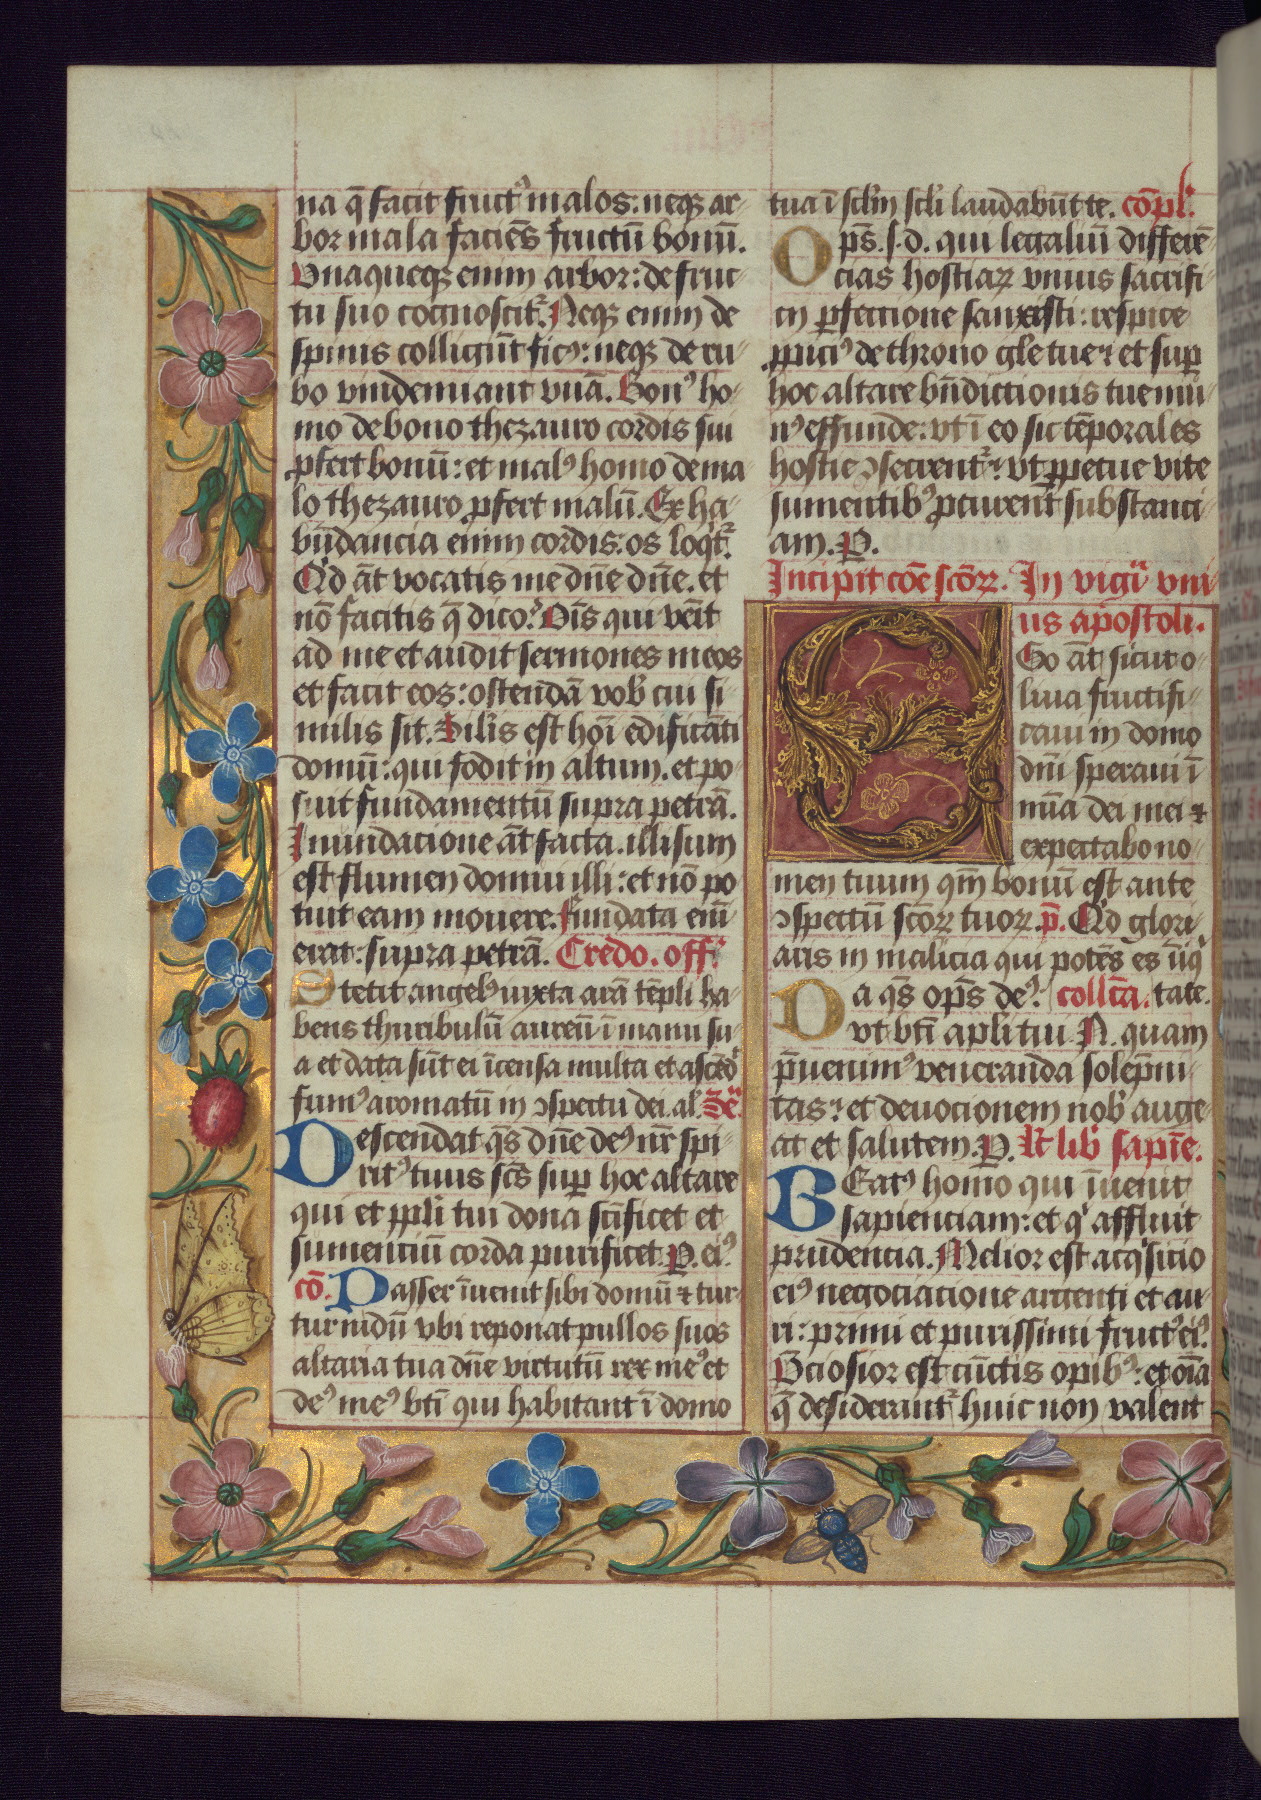 na q̄ facit fruct᷒ malos: neqꝫ ar-
bor mala faciēs fructū bonū.
Vnaqueqꝫ enim arbor: de fruc-
tu suo cognoscit᷑. Neqꝫ enim de
spinis colligūt fic᷒: neqꝫ de ru-
bo vindemiant vuā. Bon᷒ ho-
mo de bono thezauro cordis sui
ꝓfert bonū: et mal᷒ homo de ma
lo thezauro ꝓfert malū. Ex ha-
būdancia enim cordis: os loqt᷑.
Qd āt vocatis me dn̄e dn̄e. et
nō facitis q̄ dico? Oīs qui venit
ad me et audit sermones meos
et facit eos: ostendā vob̓ cui si-
milis sit. Silis est hoī edificāti
domū: qui fodit in altum. et po-
suit fundamentū supra petrā.
Inundacione āt facta. illisum
est flumen domui illi: et nō po
tuit eam mouere. Fundata enī
erat: supra petrā. Credo. off.
Stetit angel᷒ iuxta arā tēpli ha-
bens thuribulū aureū ī manu su-
a et data sūt ei īcensa multa et ascēd᷑
fum᷒ aromatū in ꝯspectu dei. al. Sec̄.
Descendat qs̄ dn̄e de᷒ nr̄ spi-
rit᷒ tuus scs̄ suꝑ hoc altare
qui et ppli tui dona sc̄ificet et
sumenciū corda purificet. P. ei᷒.
cō. Passer īuenit sibi domū ⁊ tur-
tur nidū vbi reponat pullos suos
altaria tua dn̄e virtutū rex me᷒ et
de᷒ me᷒ bt̄i qui habitant ī domo
tua ī sclm̄ scli̓ laudabūt te. cōpl.
OpS̄. s. d. qui legaliū differē-
cias hostiaꝝ vnius sacrifi-
cii ꝑfectione sanxisti: respice
ꝓpici᷒ de throno gl̄e tue: et suꝑ
hoc altare bn̄dictionis tue mu-
n᷒ effunde: vt ī eo sic tēporales
hostie ꝯsecrent᷑: vt ꝑpetue vite
sumentib᷒ ꝓcurent substanci-
am. P.
Incipit cōe scōꝝ. In vigī vni-
us apostoli.
Ego āt sicut o-
liua fructifi-
caui in domo
dn̄i speraui ī
mīa dei mei ⁊
expectabo no-
men tuum qm̄ bonū est ante
ꝯspectū scōꝝ tuoꝝ. p̄. Qd glori-
aris in malicia qui potēs es īiq
Da qs̄ opS̄ de᷒: collc̄a. tate.
vt bt̄i apli tui .N. quam
p̄uenim᷒ veneranda solēpni-
tas: et deuocionem nob̓ auge-
at et salutem. P. Lc̄ lib̓ sapīe.
BEat᷒ homo qui īuenit
sapienciam: et q̓ affluit
prudencia. Melior est acq̓sicio
ei᷒ negociacione argenti et au-
ri: primi et purissimi fruct᷒ ei᷒.
P̄ciosior est cūctis opib᷒: et oīa
q̄ desiderant᷑ huic non valent